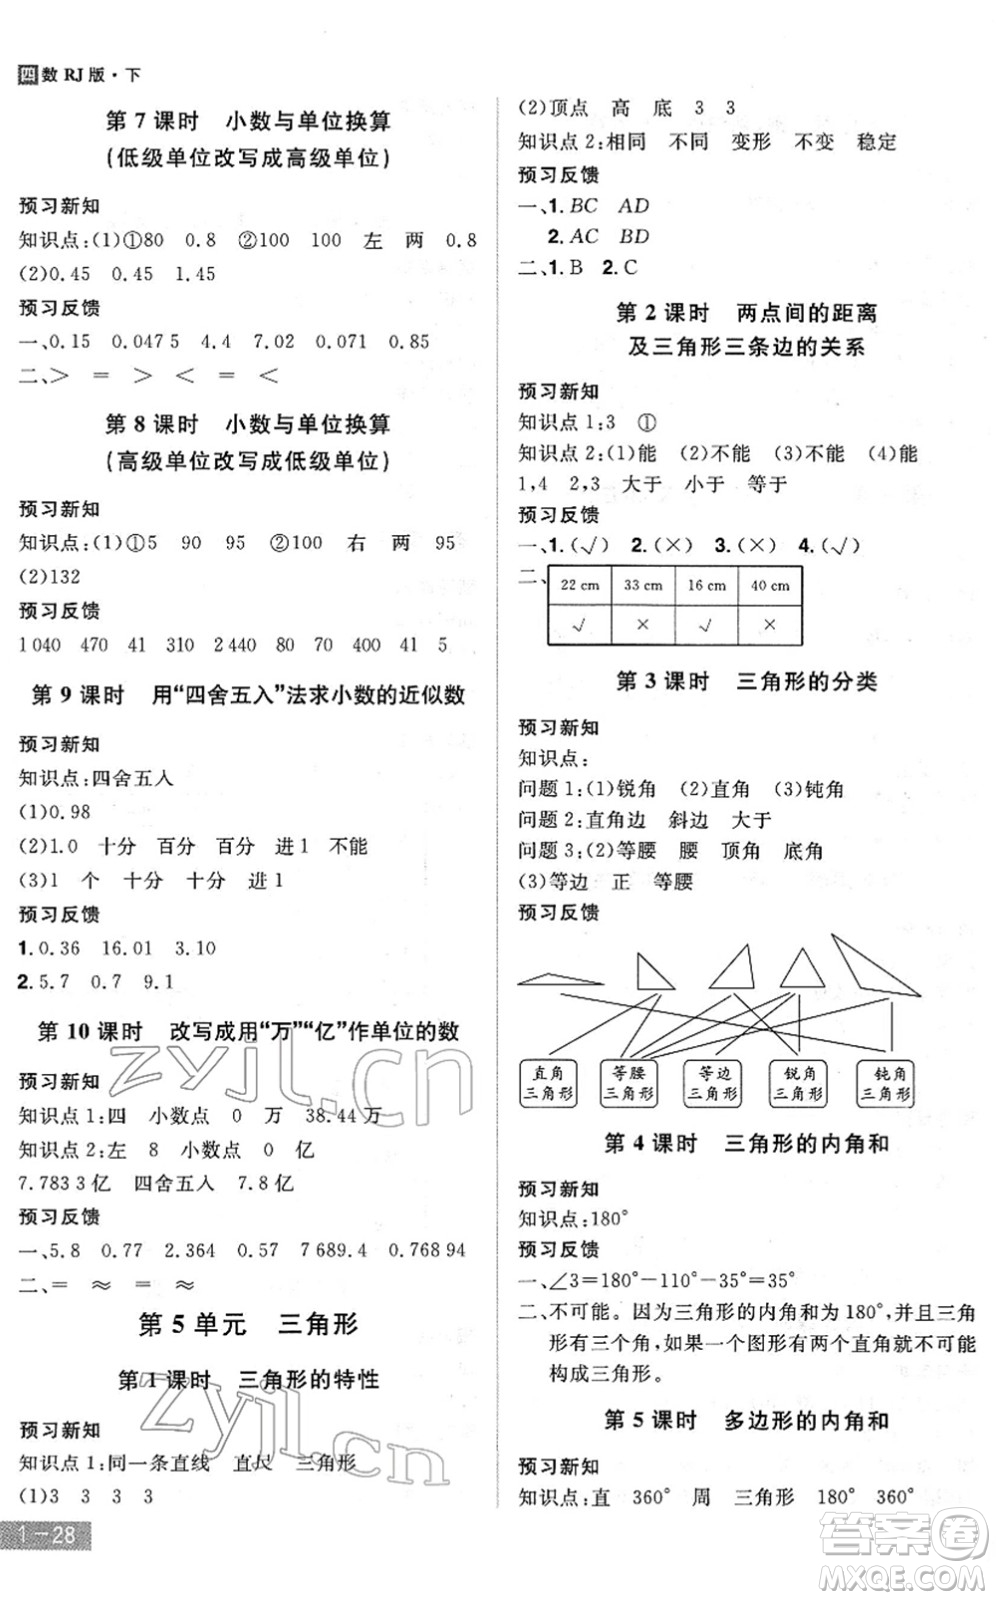 四数 RJ 版·下
第 7 课时 小数与单位换算
(低级单位改写成高级单位)
预习新知
知识点:(1)①80 0.8 ②100 100 左 两 0.8
(2)0.45 0.45 1.45
预习反馈
一、0.15 0.047 5 4.4 7.02 0.071 0.85
二、> = > < = <
第 8 课时 小数与单位换算
(高级单位改写成低级单位)
预习新知
知识点:(1)①5 90 95 ②100 右 两 95
(2)132
预习反馈
1 040 470 41 310 2 440 80 70 400 41 5
第 9 课时 用“四舍五入”法求小数的近似数
预习新知
知识点:四舍五入
(1)0.98
(2)1.0 十分 百分 百分 进1 不能
(3)1 个 十分 十分 进1
预习反馈
1.0.36 16.01 3.10
2.5.7 0.7 9.1
第 10 课时 改写成用“万”“亿”作单位的数
预习新知
知识点 1:四 小数点 0 万 38.44 万
知识点 2:左 8 小数点 0 亿
7.783 3 亿 四舍五入 7.8 亿
预习反馈
一、5.8 0.77 2.364 0.57 7 689.4 0.768 94
二、= ≈ = ≈
第 5 单元 三角形
第 1 课时 三角形的特性
预习新知
知识点 1:同一条直线 直尺 三角形
(1)3 3 3 3
1－28
(2)顶点 高 底 3 3
知识点 2:相同 不同 变形 不变 稳定
预习反馈
一、1.BC AD
2.AC BD
二、1.B 2.C
第 2 课时 两点间的距离
及三角形三条边的关系
预习新知
知识点 1:3 ①
知识点 2:(1)能 (2)不能 (3)不能 (4)能
1,4 2,3 大于 小于 等于
预习反馈
一、1.(√) 2.(×) 3.(×) 4.(√)
二、
22 cm 33 cm 16 cm 40 cm
√ × √ ×
第 3 课时 三角形的分类
预习新知
知识点:
问题 1:(1)锐角 (2)直角 (3)钝角
问题 2:直角边 斜边 大于
问题 3:(2)等腰 腰 顶角 底角
(3)等边 正 等腰
预习反馈
直角 等腰 等边 锐角 钝角
三角形 三角形 三角形 三角形 三角形
第 4 课时 三角形的内角和
预习新知
知识点:180°
预习反馈
一、∠3=180°-110°-35°=35°
二、不可能。因为三角形的内角和为180°,并且三角
形有三个角,如果一个图形有两个直角就不可能
构成三角形。
第 5 课时 多边形的内角和
预习新知
知识点:直 360° 周 三角形 180° 360°
zyjl.cn
zyjl.cn
答案圈
MXQE.COM